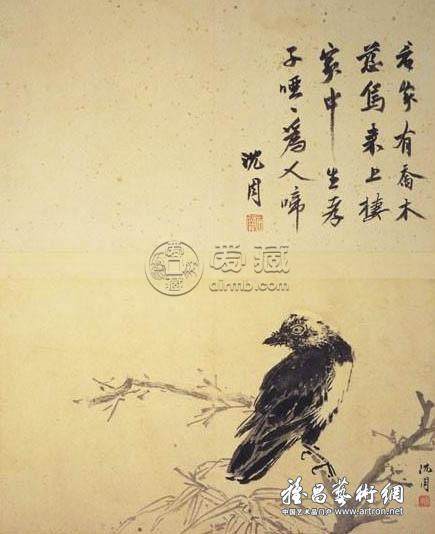 君家有喬木
慈烏來上棲
家中生孝
子唖〻為人啼
沈周
爱藏
airmb.com
沈周
雅昌藝術網
中国艺术品门户 www.artron.net